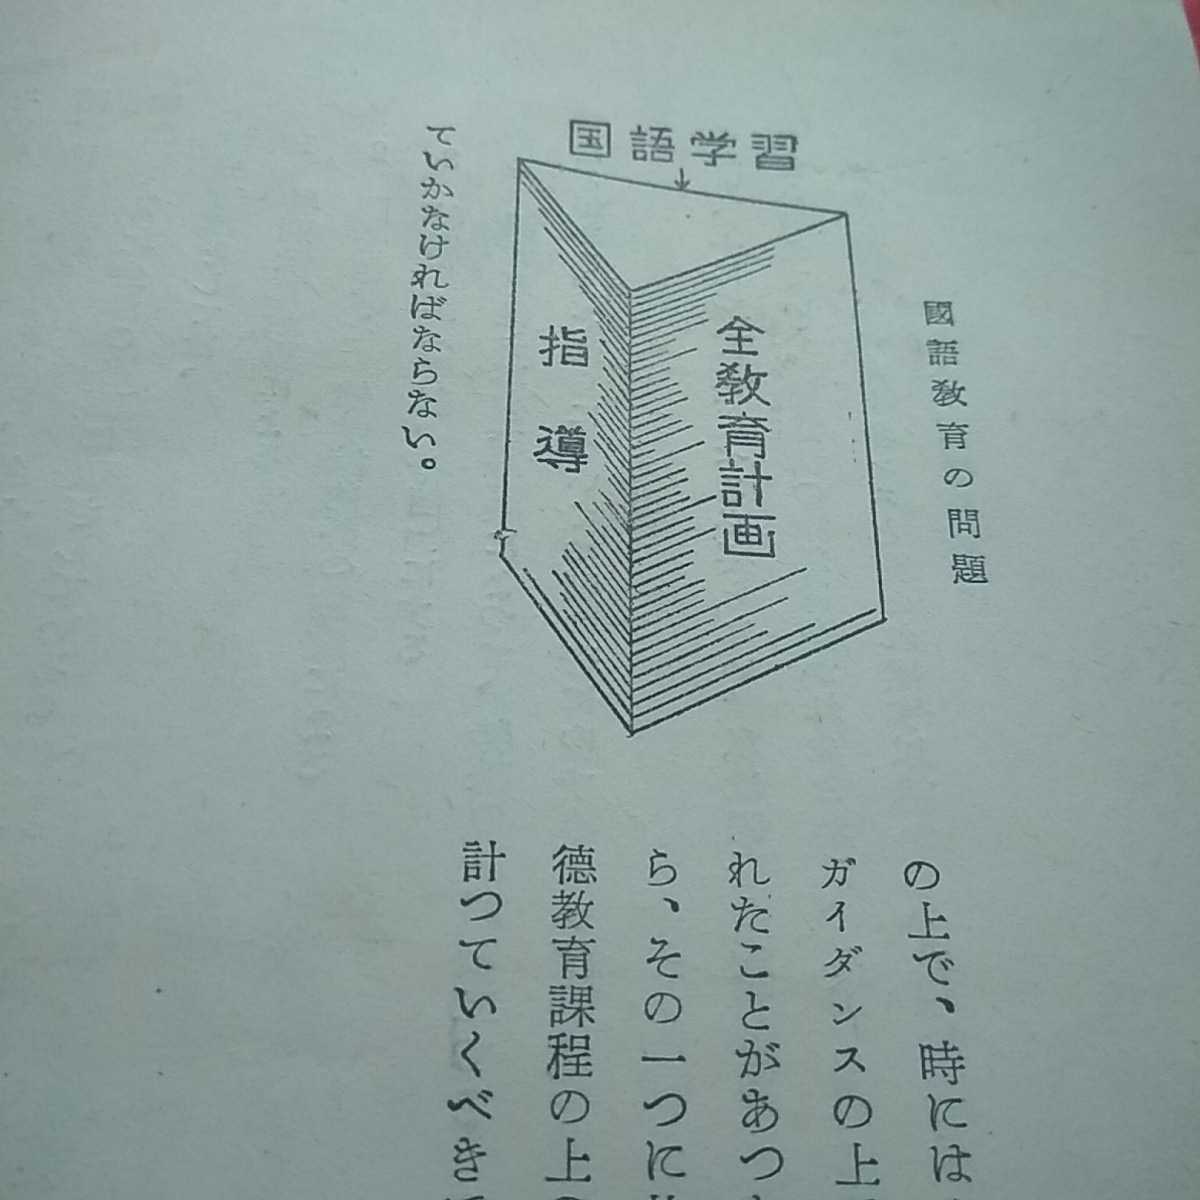 國語教育の問題
国語学習
全教育計画
指導
の上で、時には
ガイダンスの上
れたことがあつ
ら、その一つに
德教育課程の上
計つていくべき
ていかなければならない。